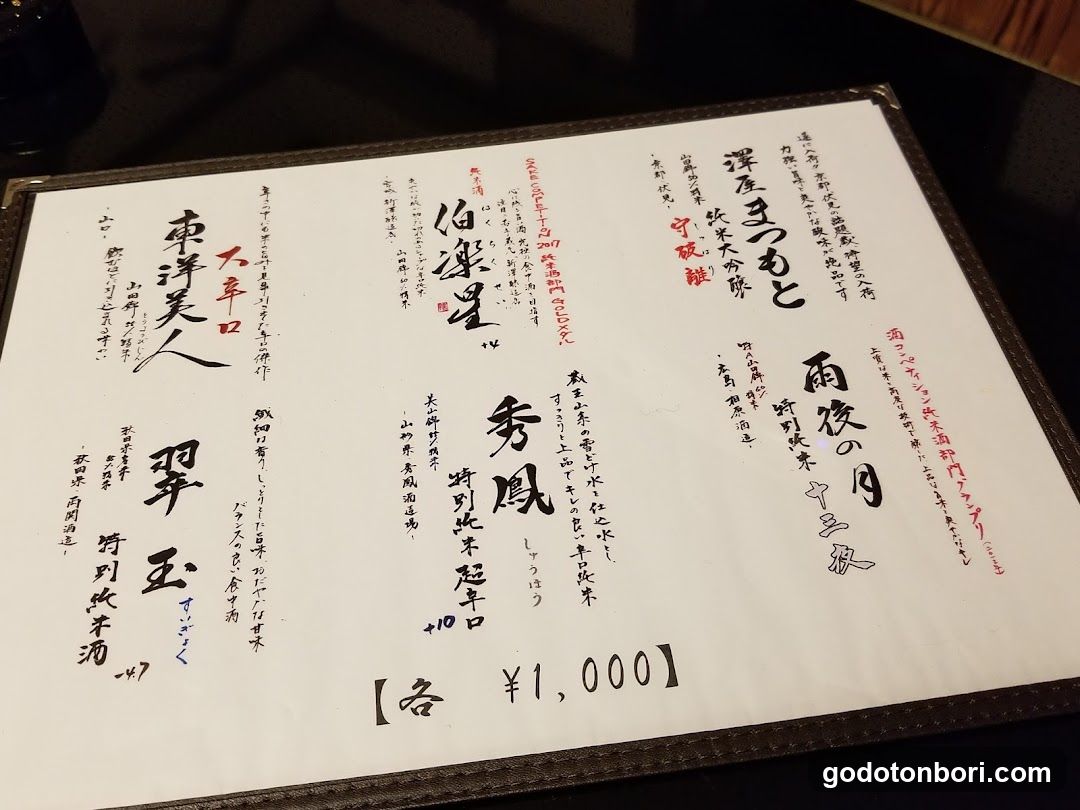 遂に入荷!! 京都 伏見の話題蔵、待望の入荷
力強い旨味と爽やかな酸味が絶品です
澤屋まつもと
純米大吟醸
守破離
しゅはり
山田錦50%精米
-京都 伏見-
酒コンペティション純米酒部門グランプリ
特別純米 十三夜
雨後の月
-広島 相原酒造-
SAKE COMPETITION 2017 純米酒部門 GOLDメダル
伯楽星
はくらくせい
+4
純米酒
-宮城 新澤醸造店-
蔵王山系の雪どけ水を仕込水とし、
すっきりと上品でキレの良い辛口純米
秀鳳
しゅうほう
特別純米 超辛口
+10
美山錦55%精米
-山形県 秀鳳酒造場-
大辛口
東洋美人
とうようびじん
-山口-
飲むほどに引き込まれる味わい
繊細な香り、しっとりとした旨味、おだやかな甘味
バランスの良い食中酒
翠玉
すいぎょく
特別純米酒
-4.7
-秋田県 両関酒造-
【各 ¥1,000】
godotonbori.com